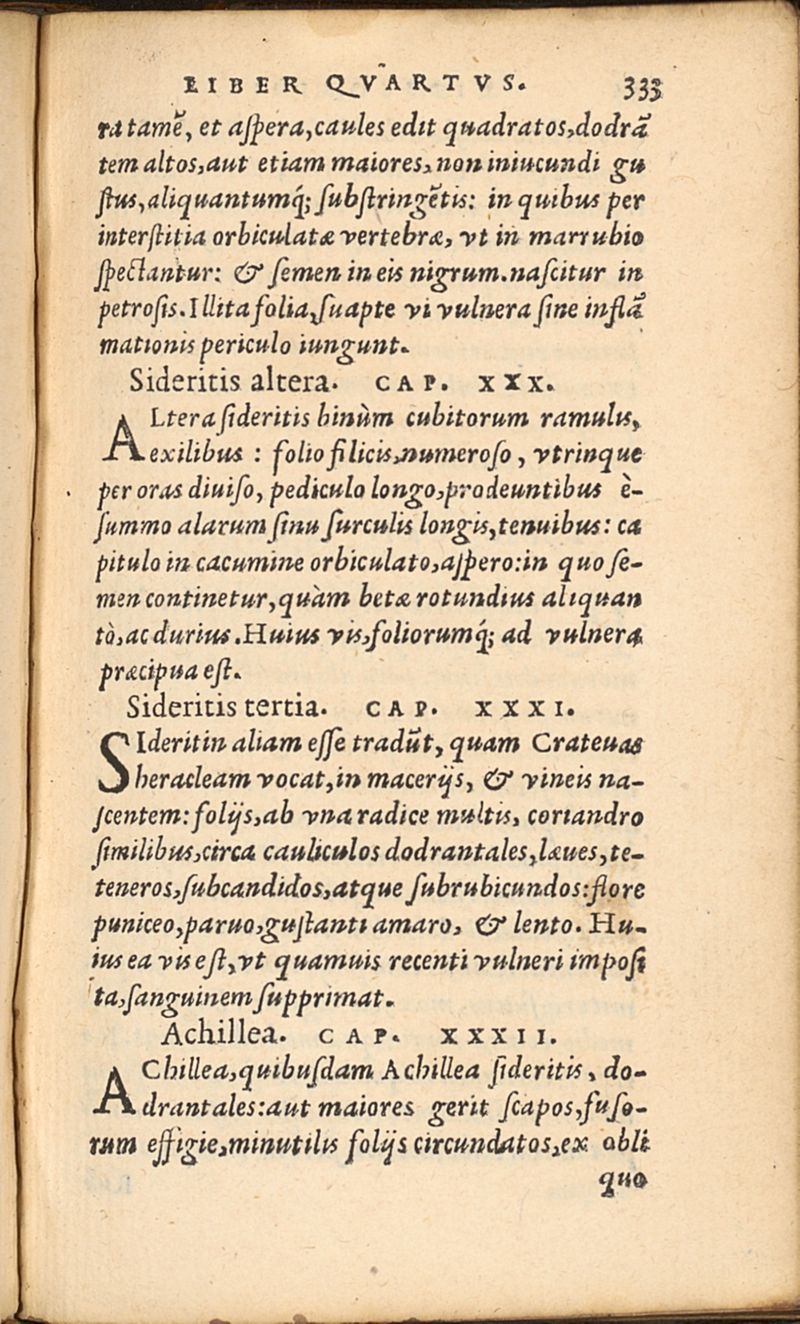 LIBER QVARTVS. 333
ra tamẽ, et aſpera, caules edit quadratos, dodrã
tem altos, aut etiam maiores, non iniucundi gu
ſtus, aliquantumq́; ſubſtringẽtis: in quibus per
interſtitia orbiculatæ vertebræ, vt in marrubio
ſpectantur: & ſemen in eis nigrum. naſcitur in
petroſis. Illita folia, ſuapte vi vulnera ſine inflã
mationis periculo iungunt.
Sideritis altera. CAP. XXX.
ALtera ſideritis binùm cubitorum ramulis,
exilibus : folio filicis, numeroſo, vtrinque
per oras diuiſo, pediculo longo, prodeuntibus è-
ſummo alarum ſinu ſurculis longis, tenuibus: ca
pitulo in cacumine orbiculato, aſpero: in quo ſe-
men continetur, quàm betæ rotundius aliquan
tò, ac durius. Huius vis, foliorumq́; ad vulnera
præcipua eſt.
Sideritis tertia. CAP. XXXI.
SIderitin aliam eſſe tradũt, quam Crateuas
heracleam vocat, in macerijs, & vineis na-
ſcentem: folijs, ab vna radice multis, coriandro
ſimilibus, circa cauliculos dodrantales, læues, te-
teneros, ſubcandidos, atque ſubrubicundos: flore
puniceo, paruo, guſtanti amaro, & lento. Hu-
ius ea vis eſt, vt quamuis recenti vulneri impoſi
ta, ſanguinem ſupprimat.
Achillea. CAP. XXXII.
AChillea, quibuſdam Achillea ſideritis, do-
drantales: aut maiores gerit ſcapos, fuſo-
rum effigie, minutilis folijs circundatos, ex obli
quo